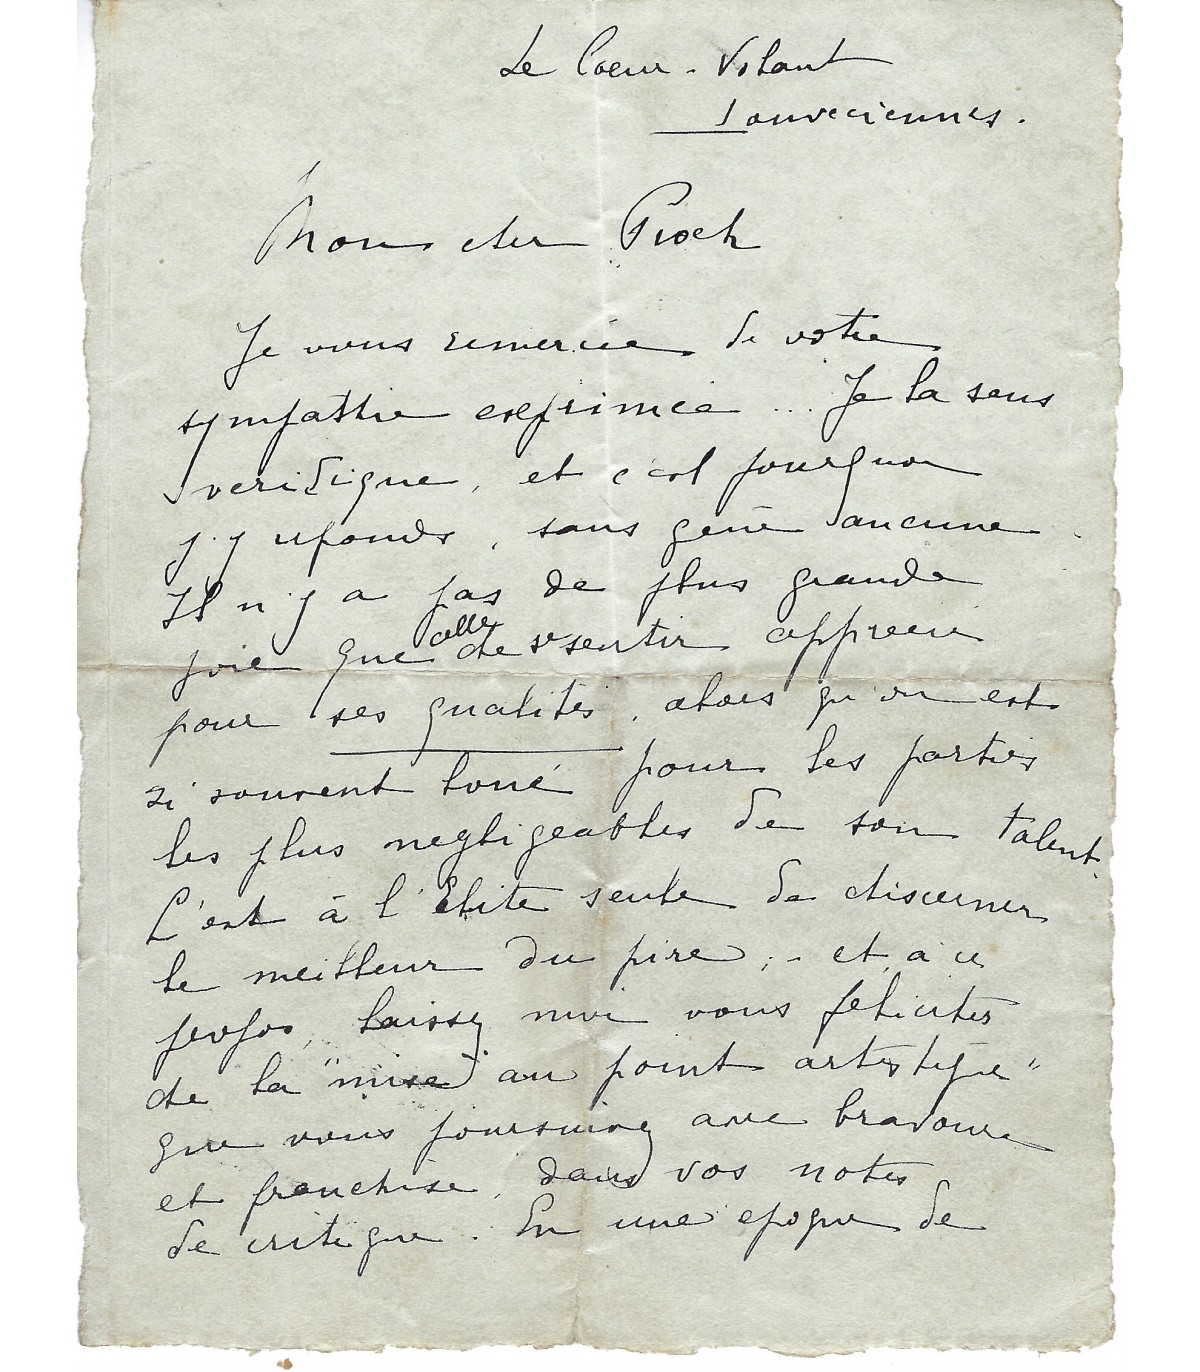 Le Coeur-Volant
Louveciennes.
Mon cher Pioch
Je vous remercie de votre
sympathie exprimée ... Je la sens
veridique, et c'est pourquoi
j'y réponds, sans gêne aucune.
Il n'y a pas de plus grande
joie que celle de se sentir apprécié
pour ses qualités, alors qu'on est
si souvent loué pour les parties
les plus negligeables de son talent.
C'est à l'Elite seule de discerner
le meilleur du pire; - et, à ce
propos, laissez moi vous féliciter
de la "mise au point artistique"
que vous poursuivez avec bravoure
et franchise, dans vos notes
de critique. En une epoque de